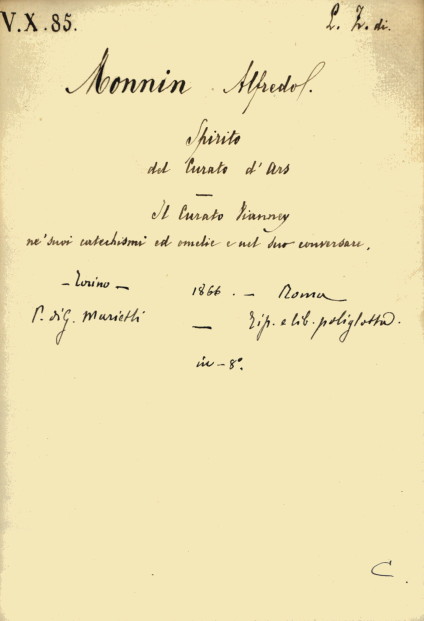 V.X.85.
L. Z. di.
Monnin Alfredo
Spirito
del Curato d'Ars
—
Il Curato Vianney
ne' suoi catechismi ed omelie e nel suo conversare.
— Torino — 1866. — Roma
P. di G. Marietti — Tip. e lib. poliglotta.
in-8°.
C.